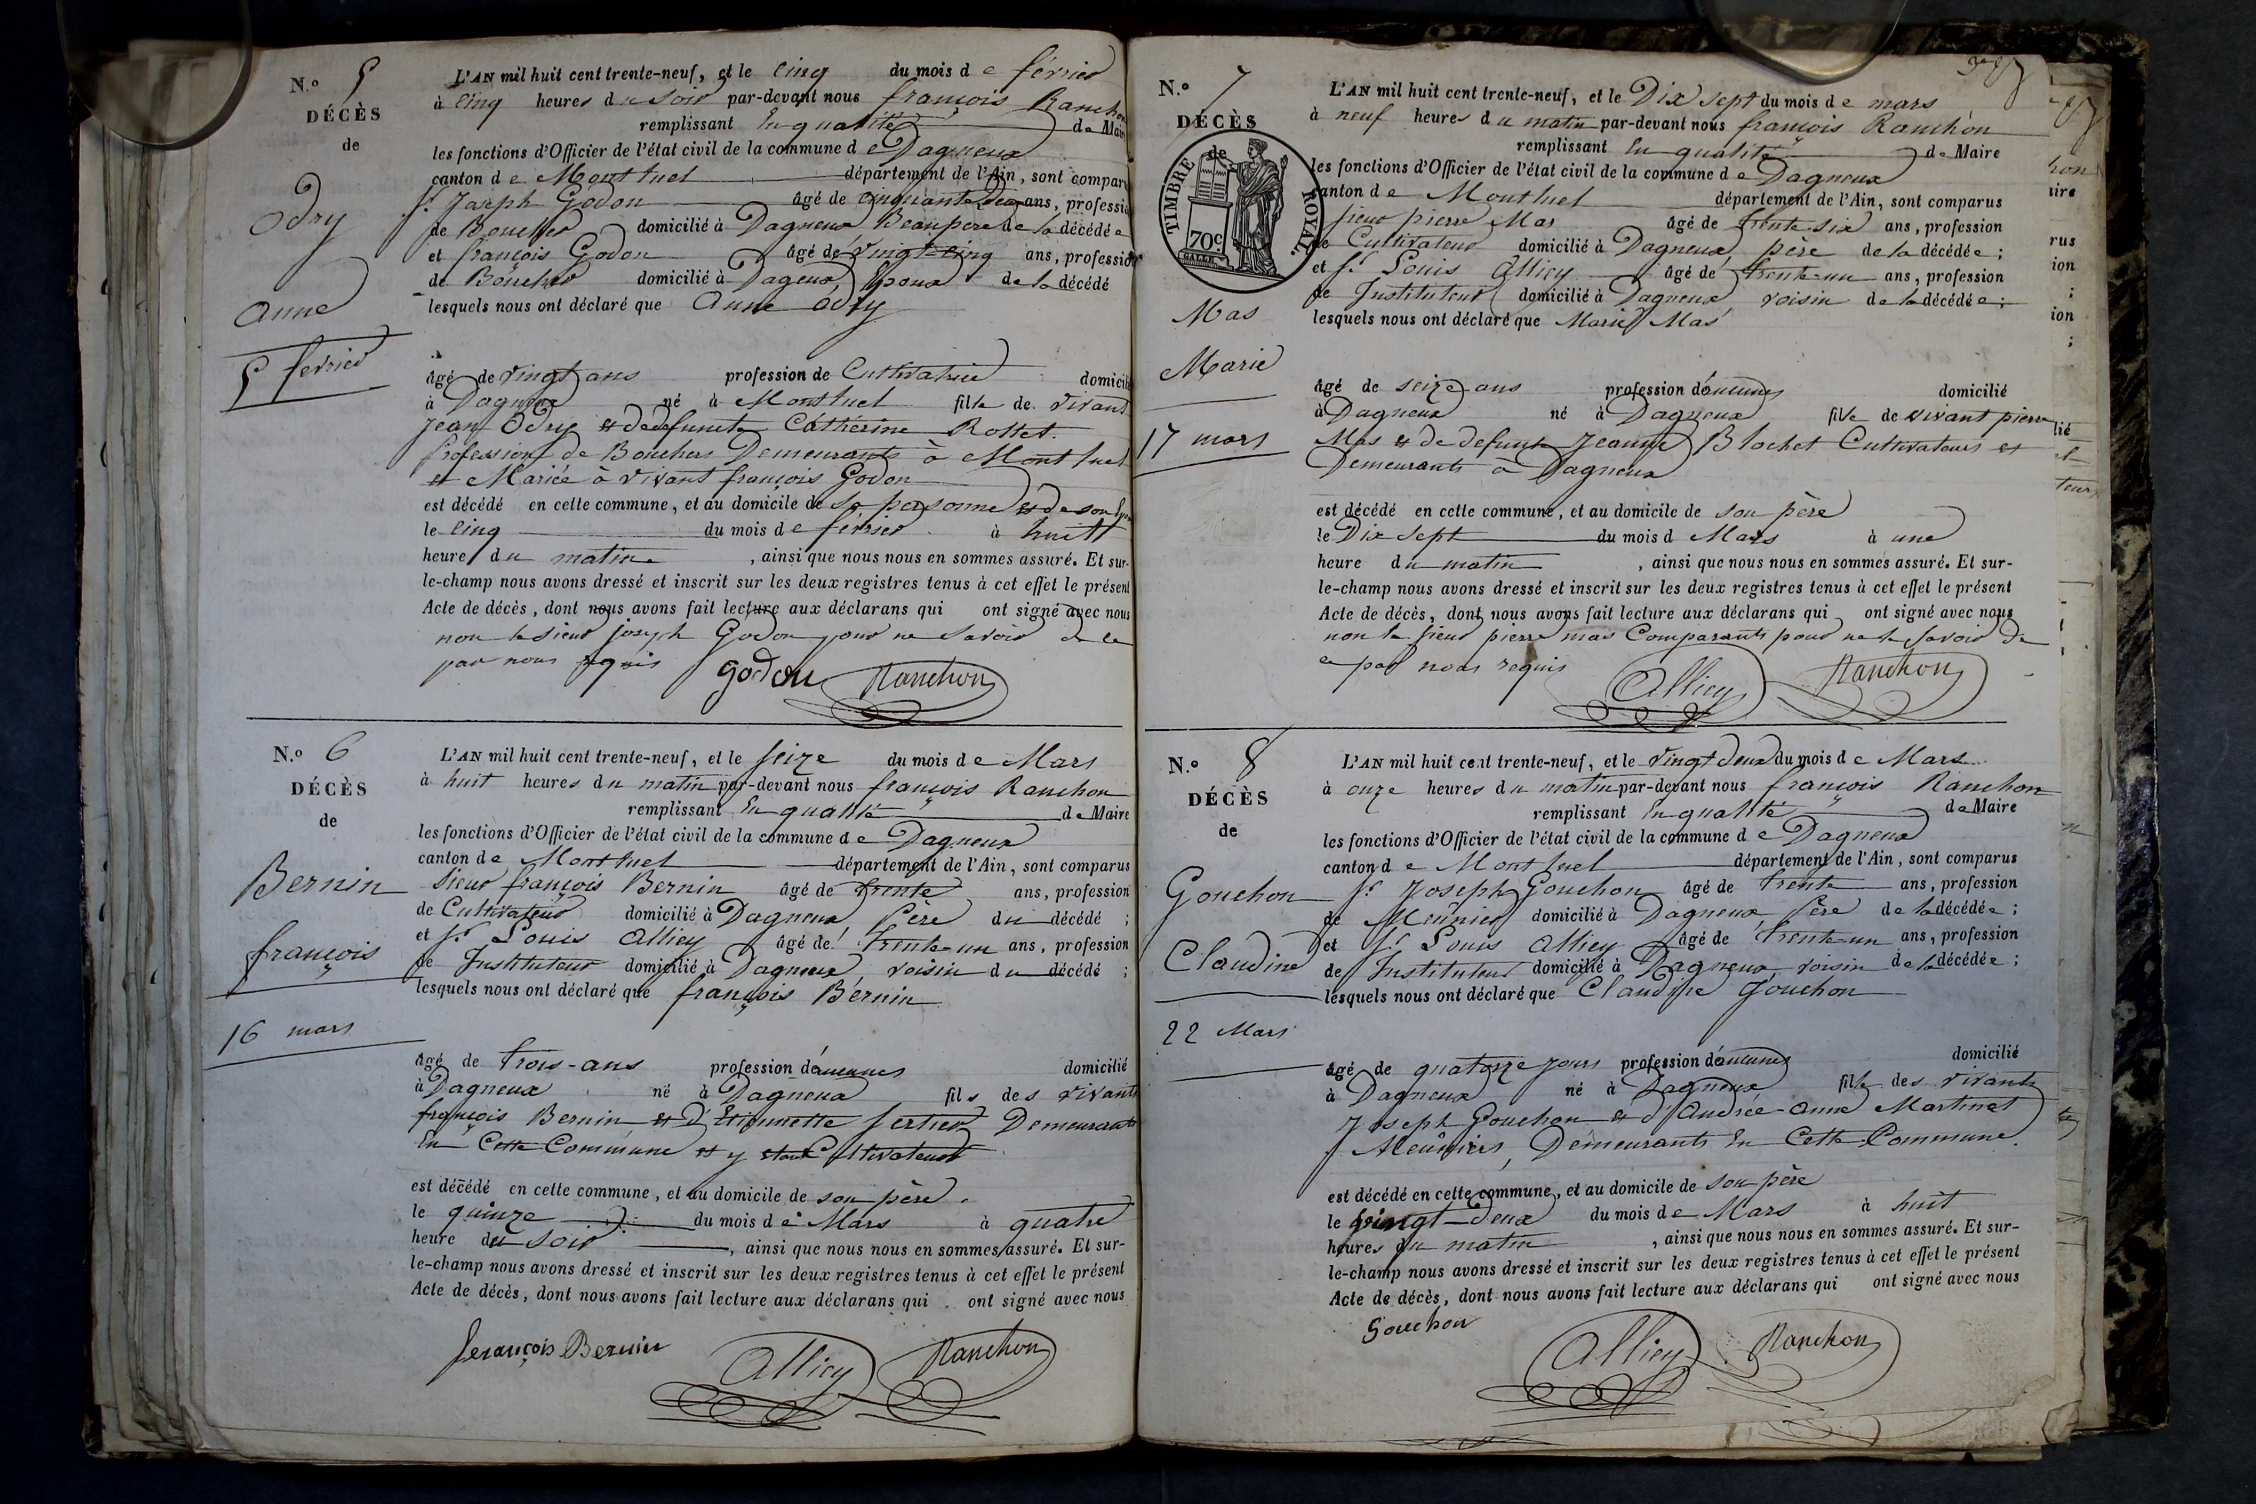 N.o 5
DÉCÈS
de
Odry
Anne
5 fevrier
L'AN mil huit cent trente-neuf, et le cinq du mois d e février
à cinq heures du soir par-devant nous françois Ranchon
remplissant En qualité de Maire
les fonctions d'Officier de l'état civil de la commune d e Dagneux
canton d e Montluel département de l'Ain, sont comparu
Sr. Joseph Godon âgé de cinquante deux ans, professio
de Boucher domicilié à Dagneux, Beaupere de la décédée
et françois Godon âgé de vingt-cinq ans, profession
de Boucher domicilié à Dageux, Epoux de la décédé
lesquels nous ont déclaré que Anne Odry
âgé de vingt ans profession de Cultivatrice domicili
à Dagneux né à Montluel fille de vivant
Jean Odry et de defuncte Cathérine Rottet.
Profession de Bouchers Demeurants à Montluel
et Mariée à vivant françois Godon
est décédé en cette commune, et au domicile de sa personne et de son
le cinq du mois d e février à huit
heure du matin , ainsi que nous nous en sommes assuré. Et sur-
le-champ nous avons dressé et inscrit sur les deux registres tenus à cet effet le présent
Acte de décès, dont nous avons fait lecture aux déclarans qui ont signé avec nous
non le sieur joseph Godon pour ne savoir de ce
par nous requis Godon Ranchon
N.o 6
DÉCÈS
de
Bernin
françois
16 mars
L'AN mil huit cent trente-neuf, et le seize du mois d e Mars
à huit heures du matin par-devant nous françois Ranchon
remplissant En qualité de Maire
les fonctions d'Officier de l'état civil de la commune d e Dagneux
canton d e Montluel département de l'Ain, sont comparus
sieur françois Bernin âgé de trente ans, profession
de Cultivateur domicilié à Dagneux Père du décédé ;
et Sr. Louis Alliey âgé de trente-un ans, profession
de Instituteur domicilié à Dagneux, voisin du décédé ;
lesquels nous ont déclaré que françois Bernin
âgé de trois-ans profession d'aucunes domicilié
à Dagneux né à Dagneux fils des vivants
françois Bernin et d'Etiennette Sertier Demeurants
En Cette Commune et y étant Cultivateurs
est décédé en cette commune, et au domicile de son père.
le quinze du mois d e Mars à quatre
heure du soir , ainsi que nous nous en sommes assuré. Et sur-
le-champ nous avons dressé et inscrit sur les deux registres tenus à cet effet le présent
Acte de décès, dont nous avons fait lecture aux déclarans qui ont signé avec nous
françois Bernin Alliey Ranchon
N.o 7
DÉCÈS
de
TIMBRE ROYAL.
70c
Mas
Marie
17 mars
L'AN mil huit cent trente-neuf, et le Dix sept du mois d e mars
à neuf heures du matin par-devant nous françois Ranchon
remplissant En qualité de Maire
les fonctions d'Officier de l'état civil de la commune d e Dagneux
canton d e Montluel département de l'Ain, sont comparus
sieur pierre Mas âgé de trente six ans, profession
de Cultivateur domicilié à Dagneux, père de la décédée ;
et Sr. Louis Alliey âgé de trente-un ans, profession
de Instituteur domicilié à Dagneux voisin de la décédée ;
lesquels nous ont déclaré que Marie Mas
âgé de seize ans profession d'aucunes domicilié
à Dagneux né à Dagneux fille de vivant pierre
Mas et de defunte Jeanne Blochet Cultivateurs et
Demeurants à Dagneux
est décédé en cette commune, et au domicile de son père
le Dix sept du mois d Mars à une
heure du matin , ainsi que nous nous en sommes assuré. Et sur-
le-champ nous avons dressé et inscrit sur les deux registres tenus à cet effet le présent
Acte de décès, dont nous avons fait lecture aux déclarans qui ont signé avec nous
non le sieur pierre mas Comparants pour ne le savoir de
ce par nous requis Alliey Ranchon
N.o 8
DÉCÈS
de
Gouchon
Claudine
22 Mars
L'AN mil huit cent trente-neuf, et le vingt deux du mois d e Mars
à onze heures du matin par-devant nous françois Ranchon
remplissant En qualité de Maire
les fonctions d'Officier de l'état civil de la commune d e Dagneux
canton d e Montluel département de l'Ain, sont comparus
Sr. Joseph Gouchon âgé de trente ans, profession
de Meûnier domicilié à Dagneux, Père de la décédée ;
et Sr. Louis Alliey âgé de trente-un ans, profession
de Instituteur domicilié à Dagneux voisin de la décédée ;
lesquels nous ont déclaré que Claudine Gouchon
âgé de quatorze jours profession d'aucunes domicilié
à Dagneux né à Dagneux fille des vivants
Joseph Gouchon et d'Andrée-Anne Martinet
Meûniers, Demeurants En Cette Commune.
est décédé en cette commune, et au domicile de son père
le vingt-Deux du mois d e Mars à huit
heures du matin , ainsi que nous nous en sommes assuré. Et sur-
le-champ nous avons dressé et inscrit sur les deux registres tenus à cet effet le présent
Acte de décès, dont nous avons fait lecture aux déclarans qui ont signé avec nous
Gouchon Alliey Ranchon